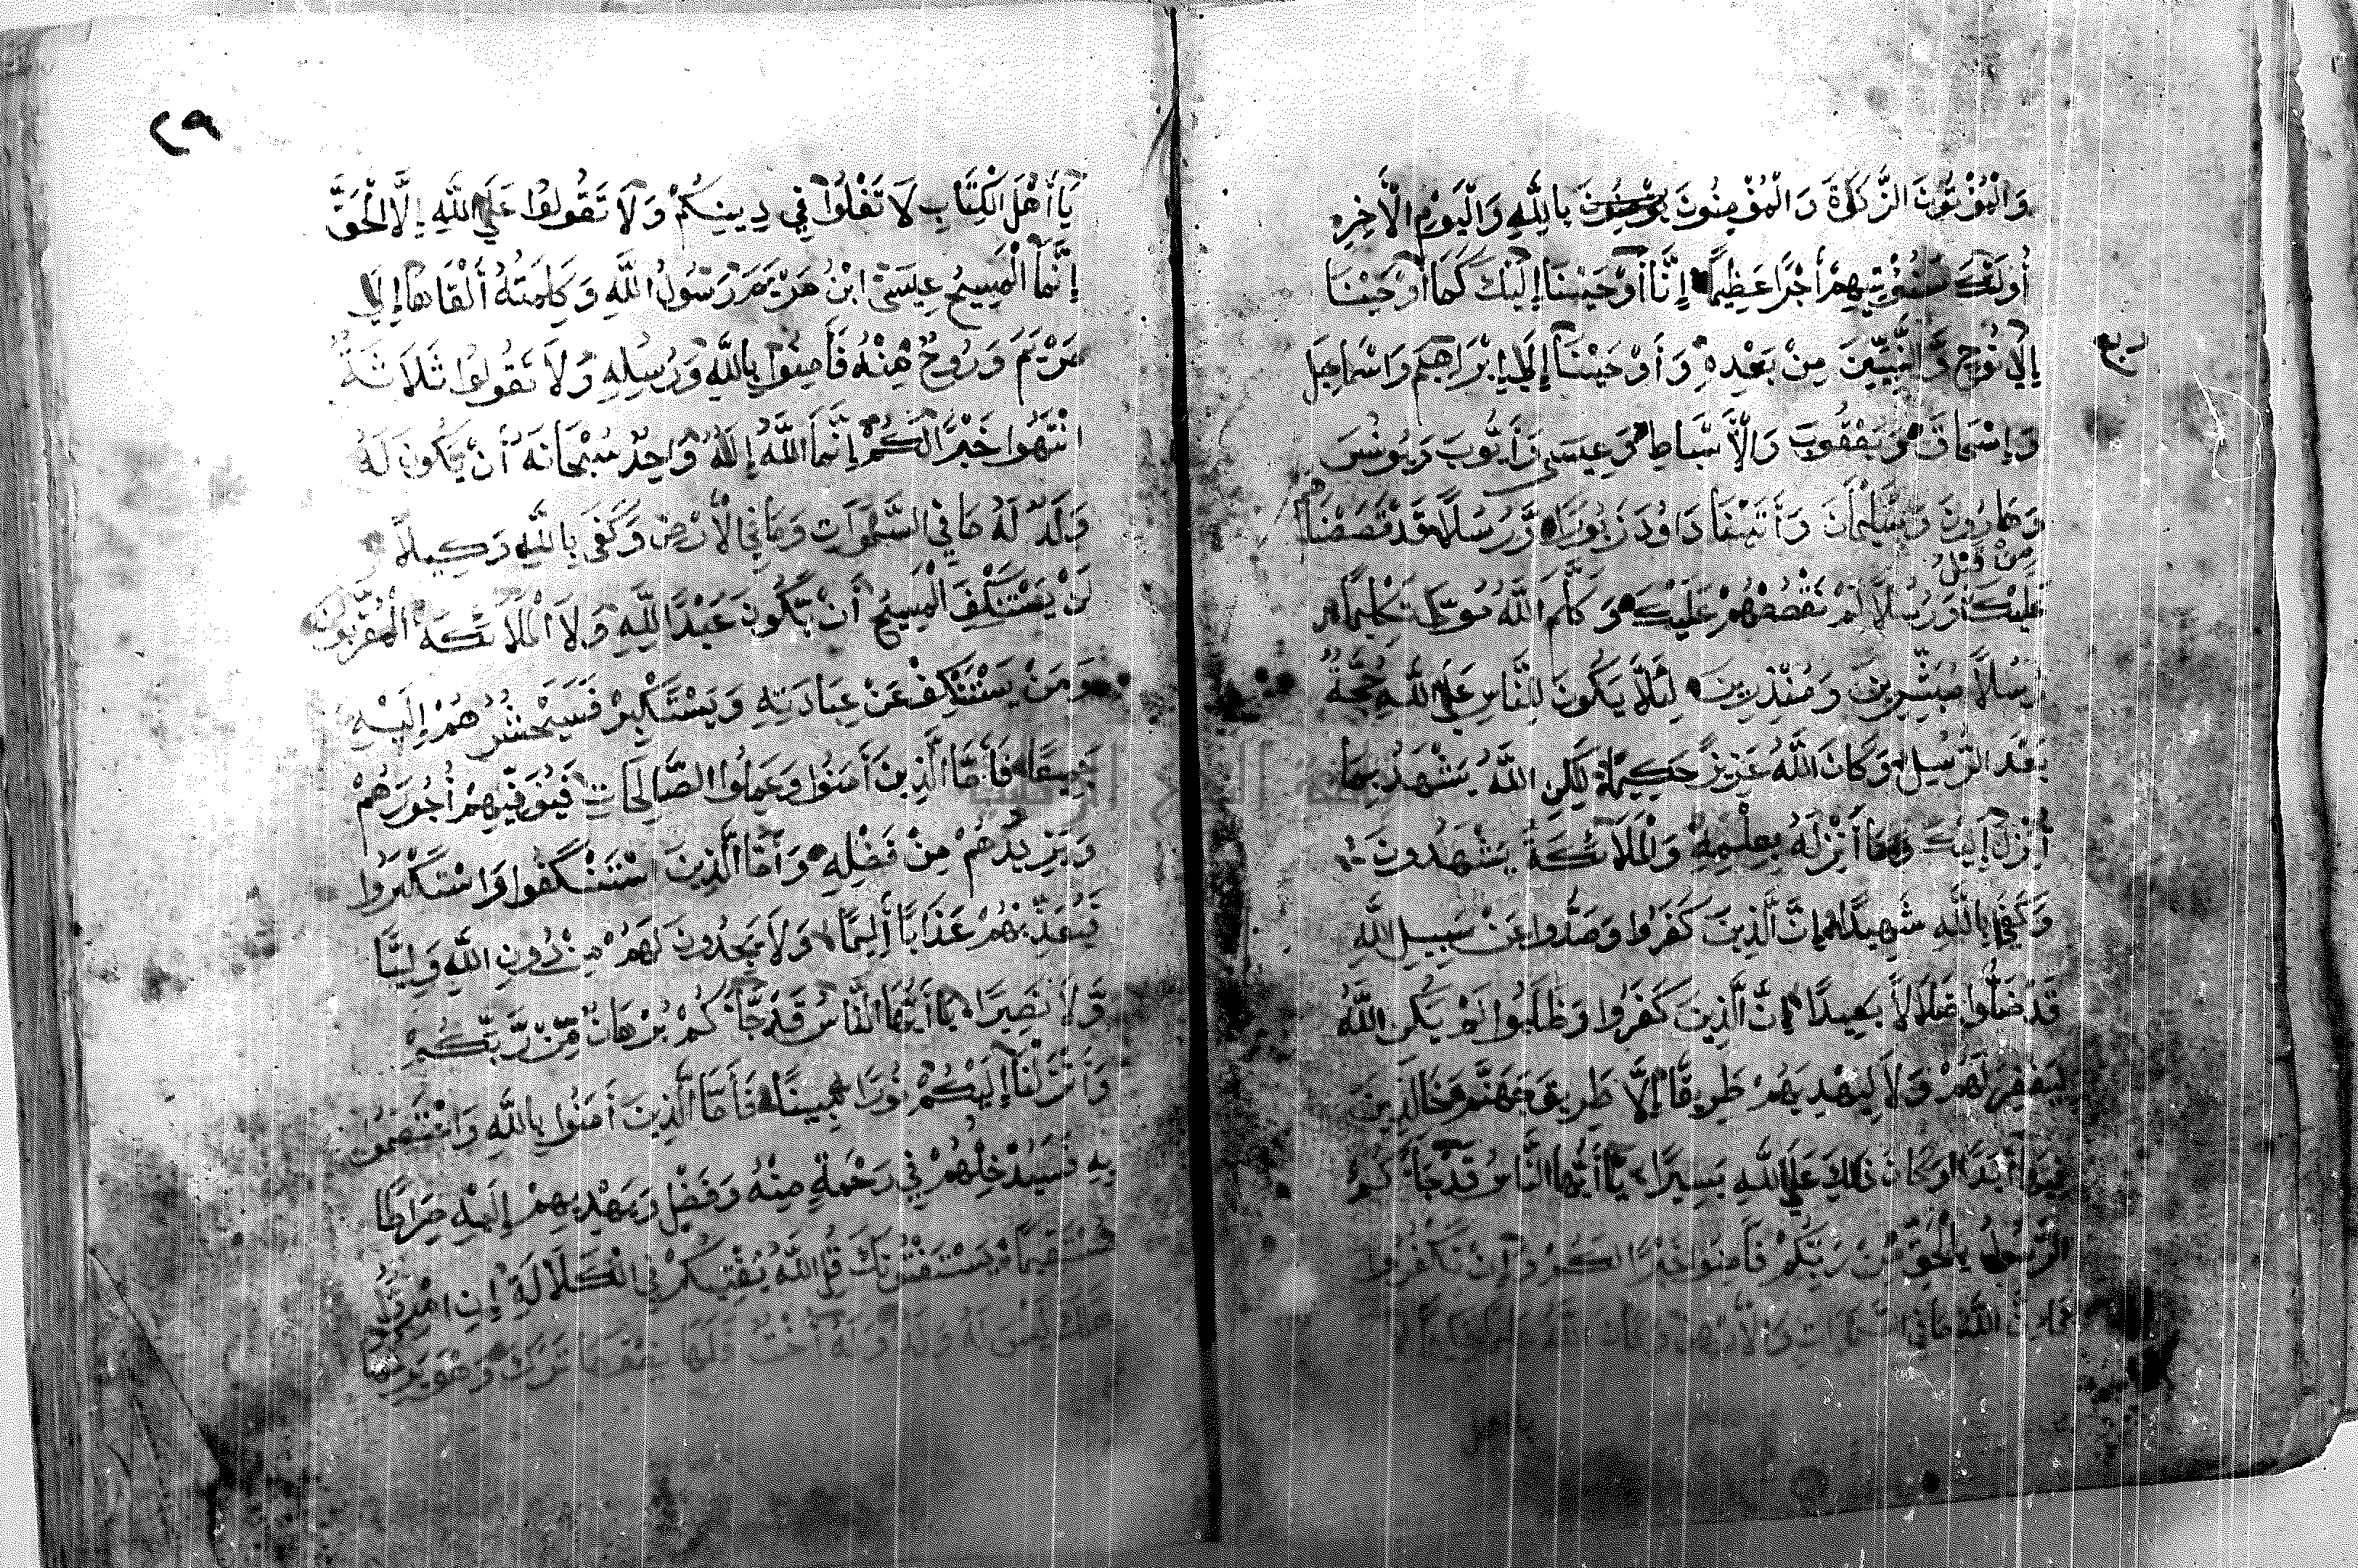 وَالْمُؤْتُونَ الزَّكَوٰةَ وَالْمُؤْمِنُونَ بِاللَّهِ وَالْيَوْمِ الْأَخِرِ
أُولَئِكَ سَنُؤْتِيهِمْ أَجْرًا عَظِيمًا إِنَّا أَوْحَيْنَا إِلَيْكَ كَمَا أَوْحَيْنَا
ربع
إِلَى نُوحٍ وَالنَّبِيِّينَ مِنْ بَعْدِهِ وَأَوْحَيْنَا إِلَى إِبْرَاهِيمَ وَاسْمَاعِيلَ
وَإِسْحَاقَ وَيَعْقُوبَ وَالْأَسْبَاطِ وَعِيسَى وَأَيُّوبَ وَيُونُسَ
وَهَارُونَ وَسُلَيْمَانَ وَأَتَيْنَا دَاوُدَ زَبُورًا وَرُسُلًا قَدْ قَصَصْنَاهُمْ
مِنْ قَبْلُ
عَلَيْكَ وَرُسُلًا لَمْ نَقْصُصْهُمْ عَلَيْكَ وَكَلَّمَ اللَّهُ مُوسَى تَكْلِيمًا
رُسُلًا مُبَشِّرِينَ وَمُنْذِرِينَ لِئَلَّا يَكُونَ لِلنَّاسِ عَلَى اللَّهِ حُجَّةٌ
بَعْدَ الرُّسُلِ وَكَانَ اللَّهُ عَزِيزً حَكِيمًا لَكِنِ اللَّهُ يَشْهَدُ بِمَا
أُنْزِلَ إِلَيْكَ أَنْزَلَهُ بِعِلْمِهِ وَالْمَلَائِكَةُ يَشْهَدُونَ
وَكَفَى بِاللَّهِ شَهِيدًا إِنَّ الَّذِينَ كَفَرُوا وَصَدُّوا عَنْ سَبِيلِ اللَّهِ
قَدْ ضَلُّوا ضَلَالًا بَعِيدًا إِنَّ الَّذِينَ كَفَرُوا وَظَلَمُوا لَمْ يَكُنِ اللَّهُ
لِيَغْفِرَ لَهُمْ وَلَا لِيَهْدِيَهُمْ طَرِيقًا إِلَّا طَرِيقَ جَهَنَّمَ خَالِدِينَ
فِيهَا أَبَدًا وَكَانَ ذَلِكَ عَلَى اللَّهِ يَسِيرًا يَا أَيُّهَا النَّاسُ قَدْ جَاءَكُمُ
الرَّسُولُ بِالْحَقِّ مِنْ رَبِّكُمْ فَأَمِنُوا خَيْرًا لَكُمْ وَإِنْ تَكْفُرُوا
فَإِنَّ اللَّهَ مَا فِي السَّمَاوَاتِ وَالْأَرْضِ وَكَانَ اللَّهُ
٢٩
يَا أَهْلَ الْكِتَابِ لَا تَغْلُوا فِي دِينِكُمْ وَلَا تَقُولُوا عَلَى اللَّهِ إِلَّا الْحَقَّ
إِنَّمَا الْمَسِيحُ عِيسَى ابْنُ مَرْيَمَ رَسُولُ اللَّهِ وَكَلِمَتُهُ أَلْقَاهَا إِلَى
مَرْيَمَ وَرُوحٌ مِنْهُ فَأَمِنُوا بِاللَّهِ وَرُسُلِهِ وَلَا تَقُولُوا ثَلَاثَةٌ
انْتَهُوا خَيْرًا لَكُمْ إِنَّمَا اللَّهُ إِلَهٌ وَاحِدٌ سُبْحَانَهُ أَنْ يَكُونَ لَهُ
وَلَدٌ لَهُ مَا فِي السَّمَوَاتِ وَمَا فِي الْأَرْضِ وَكَفَى بِاللَّهِ وَكِيلًا
لَنْ يَسْتَنْكِفَ الْمَسِيحُ أَنْ يَكُونَ عَبْدًا لِلَّهِ وَلَا الْمَلَائِكَةُ الْمُقَرَّبُونَ
وَمَنْ يَسْتَنْكِفْ عَنْ عِبَادَتِهِ وَيَسْتَكْبِرْ فَسَيَحْشُرُهُمْ إِلَيْهِ
جَمِيعًا فَأَمَّا الَّذِينَ أَمَنُوا وَعَمِلُوا الصَّالِحَاتِ فَيُوَفِّيهِمْ أُجُورَهُمْ
وَيَزِيدُهُمْ مِنْ فَضْلِهِ وَأَمَّا الَّذِينَ اسْتَنْكَفُوا وَاسْتَكْبَرُوا
فَيُعَذِّبُهُمْ عَذَابًا أَلِيمًا وَلَا يَجِدُونَ لَهُمْ مِنْ دُونِ اللَّهِ وَلِيًّا
وَلَا نَصِيرًا يَا أَيُّهَا النَّاسُ قَدْ جَاءَكُمْ بُرْهَانٌ مِنْ رَبِّكُمْ
وَأَنْزَلْنَا إِلَيْكُمْ نُورًا مُبِينًا فَأَمَّا الَّذِينَ أَمَنُوا بِاللَّهِ وَاعْتَصَمُوا
بِهِ فَسَيُدْخِلُهُمْ فِي رَحْمَةٍ مِنْهُ وَفَضْلٍ وَيَهْدِيهِمْ إِلَيْهِ صِرَاطًا
مُسْتَقِيمًا يَسْتَفْتُونَكَ قُلِ اللَّهُ يُفْتِيكُمْ فِي الْكَلَالَةِ إِنِ امْرُؤٌ
هَلَكَ لَيْسَ لَهُ وَلَدٌ وَلَهُ أُخْتٌ فَلَهَا نِصْفُ مَا تَرَكَ وَهُوَ يَرِثُهَا